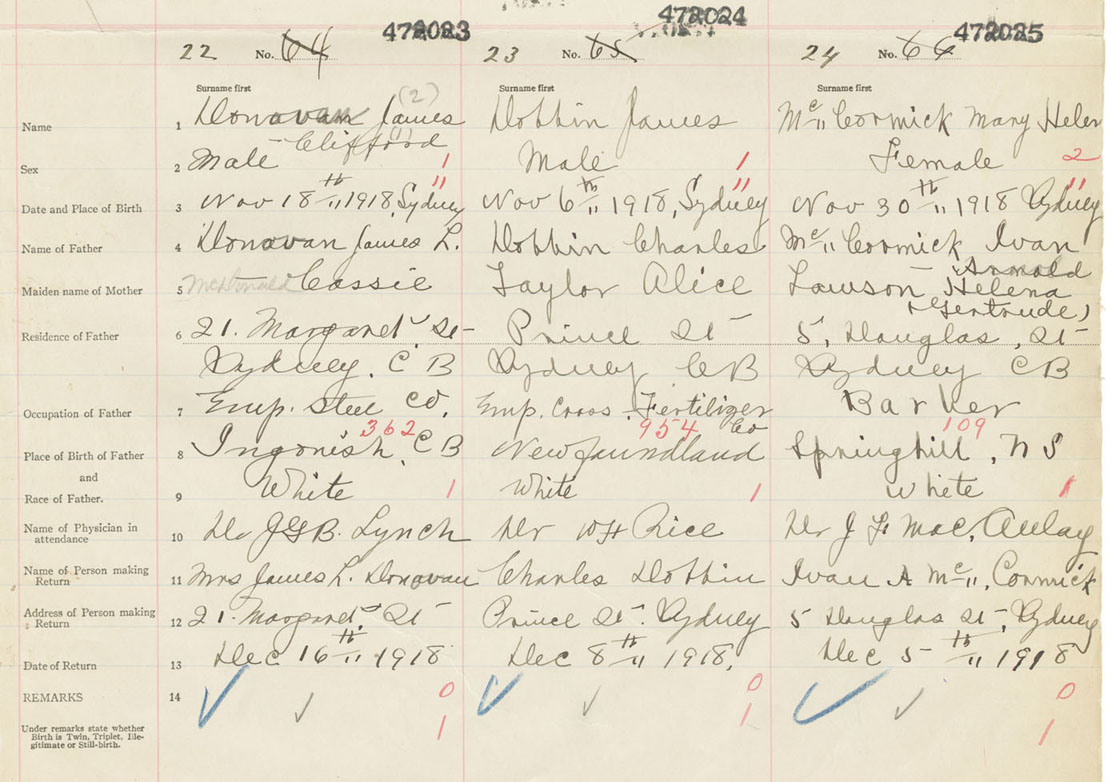 472023 472024 472025
22 No. 64 23 No. 65 24 No. 66
Surname first Surname first Surname first
Name 1 Donovan James (2) Dobbin James Mc" Cormick Mary Helen
Clifford (1)
Sex 2 Male 1 Male 1 Female 2
Date and Place of Birth 3 Nov 18th" 1918, Sydney Nov 6th" 1918, Sydney Nov 30th" 1918 Sydney
Name of Father 4 Donovan James L. Dobbin Charles Mc" Cormick Ivan
Arnold
Maiden name of Mother 5 McDonald Cassie Taylor Alice Lawson Helena
(Gertrude)
Residence of Father 6 21. Margaret St Prince St 5, Douglas, St
Sydney, C B Sydney C B Sydney C B
Occupation of Father 7 Emp. Steel Co, Emp. Cross Fertilizer Barker
Co
362 954 109
Place of Birth of Father 8 Ingonish, C B Newfoundland Springhill, N S
and
Race of Father. 9 White 1 White 1 White 1
Name of Physician in
attendance 10 Dr J G B. Lynch Dr W H Rice Dr J F Mac, Aulay
Name of Person making
Return 11 Mrs James L. Donovan Charles Dobbin Ivan A Mc", Cormick
Address of Person making
Return 12 21. Margaret St Prince St. Sydney 5 Douglas St, Sydney
Date of Return 13 Dec 16th" 1918 Dec 8th" 1918, Dec 5th" 1918
REMARKS 14 0 0 0
Under remarks state whether
Birth is Twin, Triplet, Ille-
gitimate or Still-birth. 1 1 1